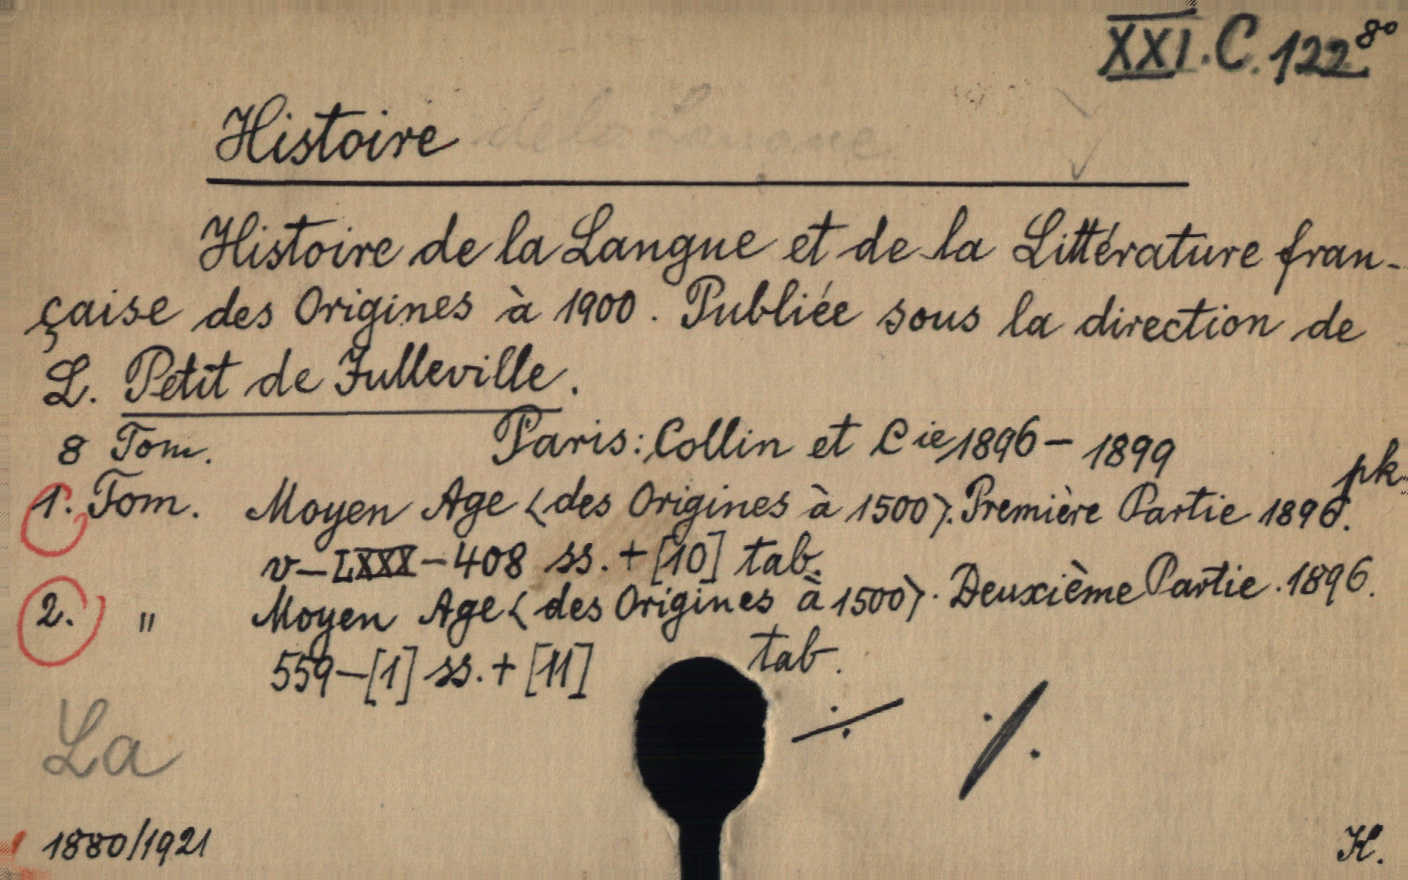 XXI.C.122 8°
Histoire de la Langue
Histoire de la Langue et de la Littérature fran-
çaise des Origines à 1900. Publiée sous la direction de
L. Petit de Julleville.
8 Tom. Paris: Collin et Cie, 1896-1899
pk.
1. Tom. Moyen Age <des Origines à 1500>. Première Partie 1896.
v-LXXX-408 ss. + [10] tab.
2. " Moyen Age <des Origines à 1500>. Deuxième Partie. 1896.
559-[1] ss. + [11] tab.
La
1880/1921
K.